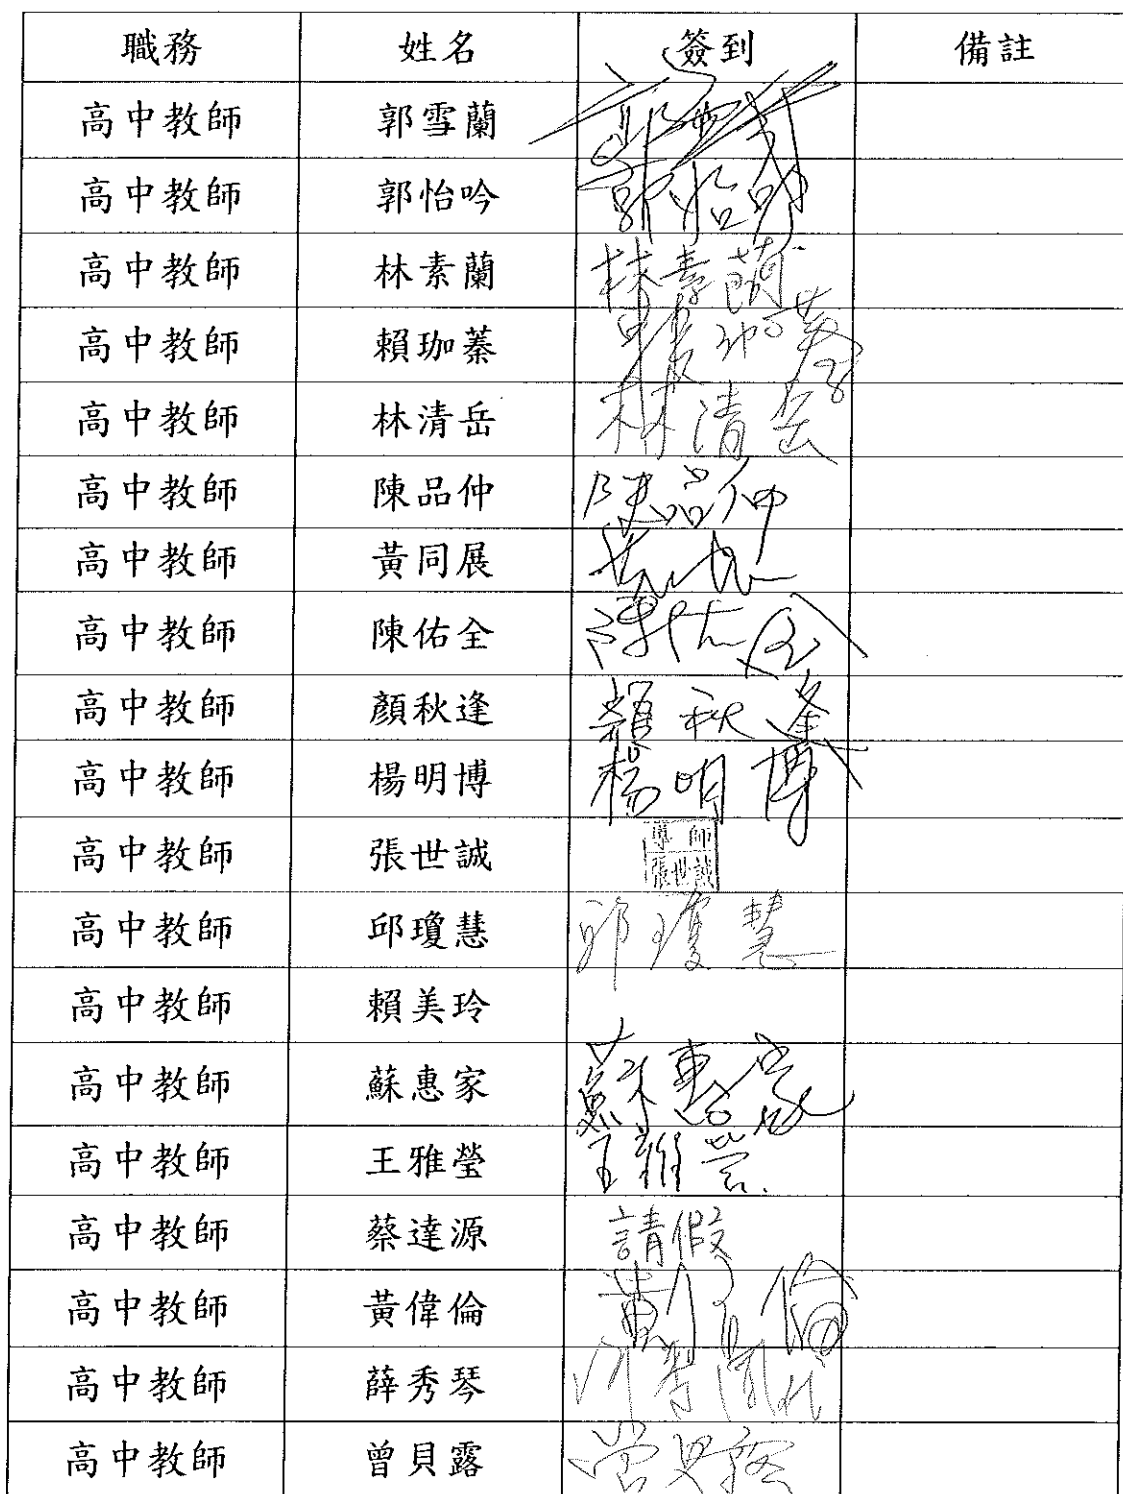 職務 姓名 簽到 備註
高中教師 郭雪蘭
高中教師 郭怡吟 郭怡吟
高中教師 林素蘭 林素蘭
高中教師 賴珈蓁 賴珈蓁
高中教師 林清岳 林清岳
高中教師 陳品仲 陳品仲
高中教師 黃同展
高中教師 陳佑全 陳佑全
高中教師 顏秋逢 顏秋逢
高中教師 楊明博 楊明博
高中教師 張世誠 導師 張世誠
高中教師 邱瓊慧 邱瓊慧
高中教師 賴美玲
高中教師 蘇惠家 蘇惠家
高中教師 王雅瑩 王雅瑩
高中教師 蔡達源 請假
高中教師 黃偉倫 黃偉倫
高中教師 薛秀琴
高中教師 曾貝露 曾貝露